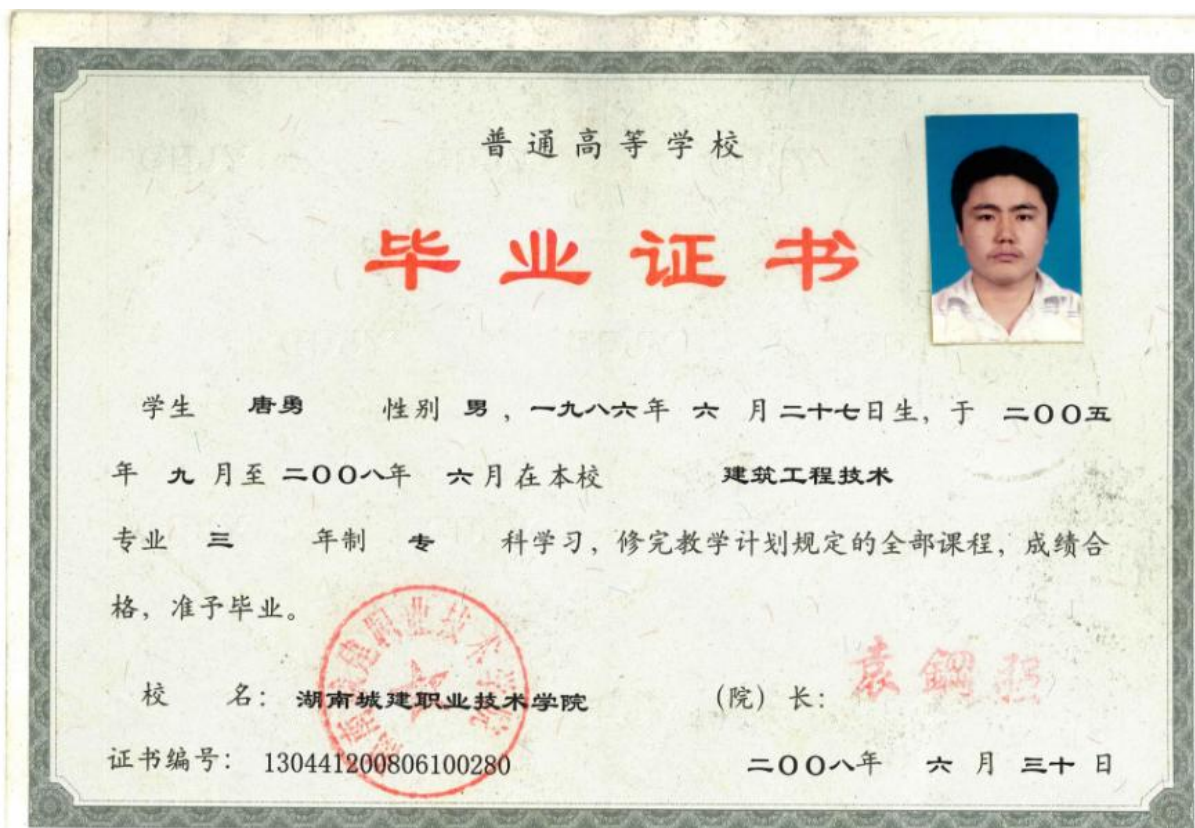 普通高等学校
毕业证书
学生 唐勇 性别 男，一九八六年 六 月二十七日生，于 二〇〇五
年 九 月至 二〇〇八年 六月在本校 建筑工程技术
专业 三 年制 专 科学习，修完教学计划规定的全部课程，成绩合
格，准予毕业。
校 名：湖南城建职业技术学院 （院）长：袁鋼强
证书编号：130441200806100280 二〇〇八年 六 月 三十 日
湖南城建职业技术学院